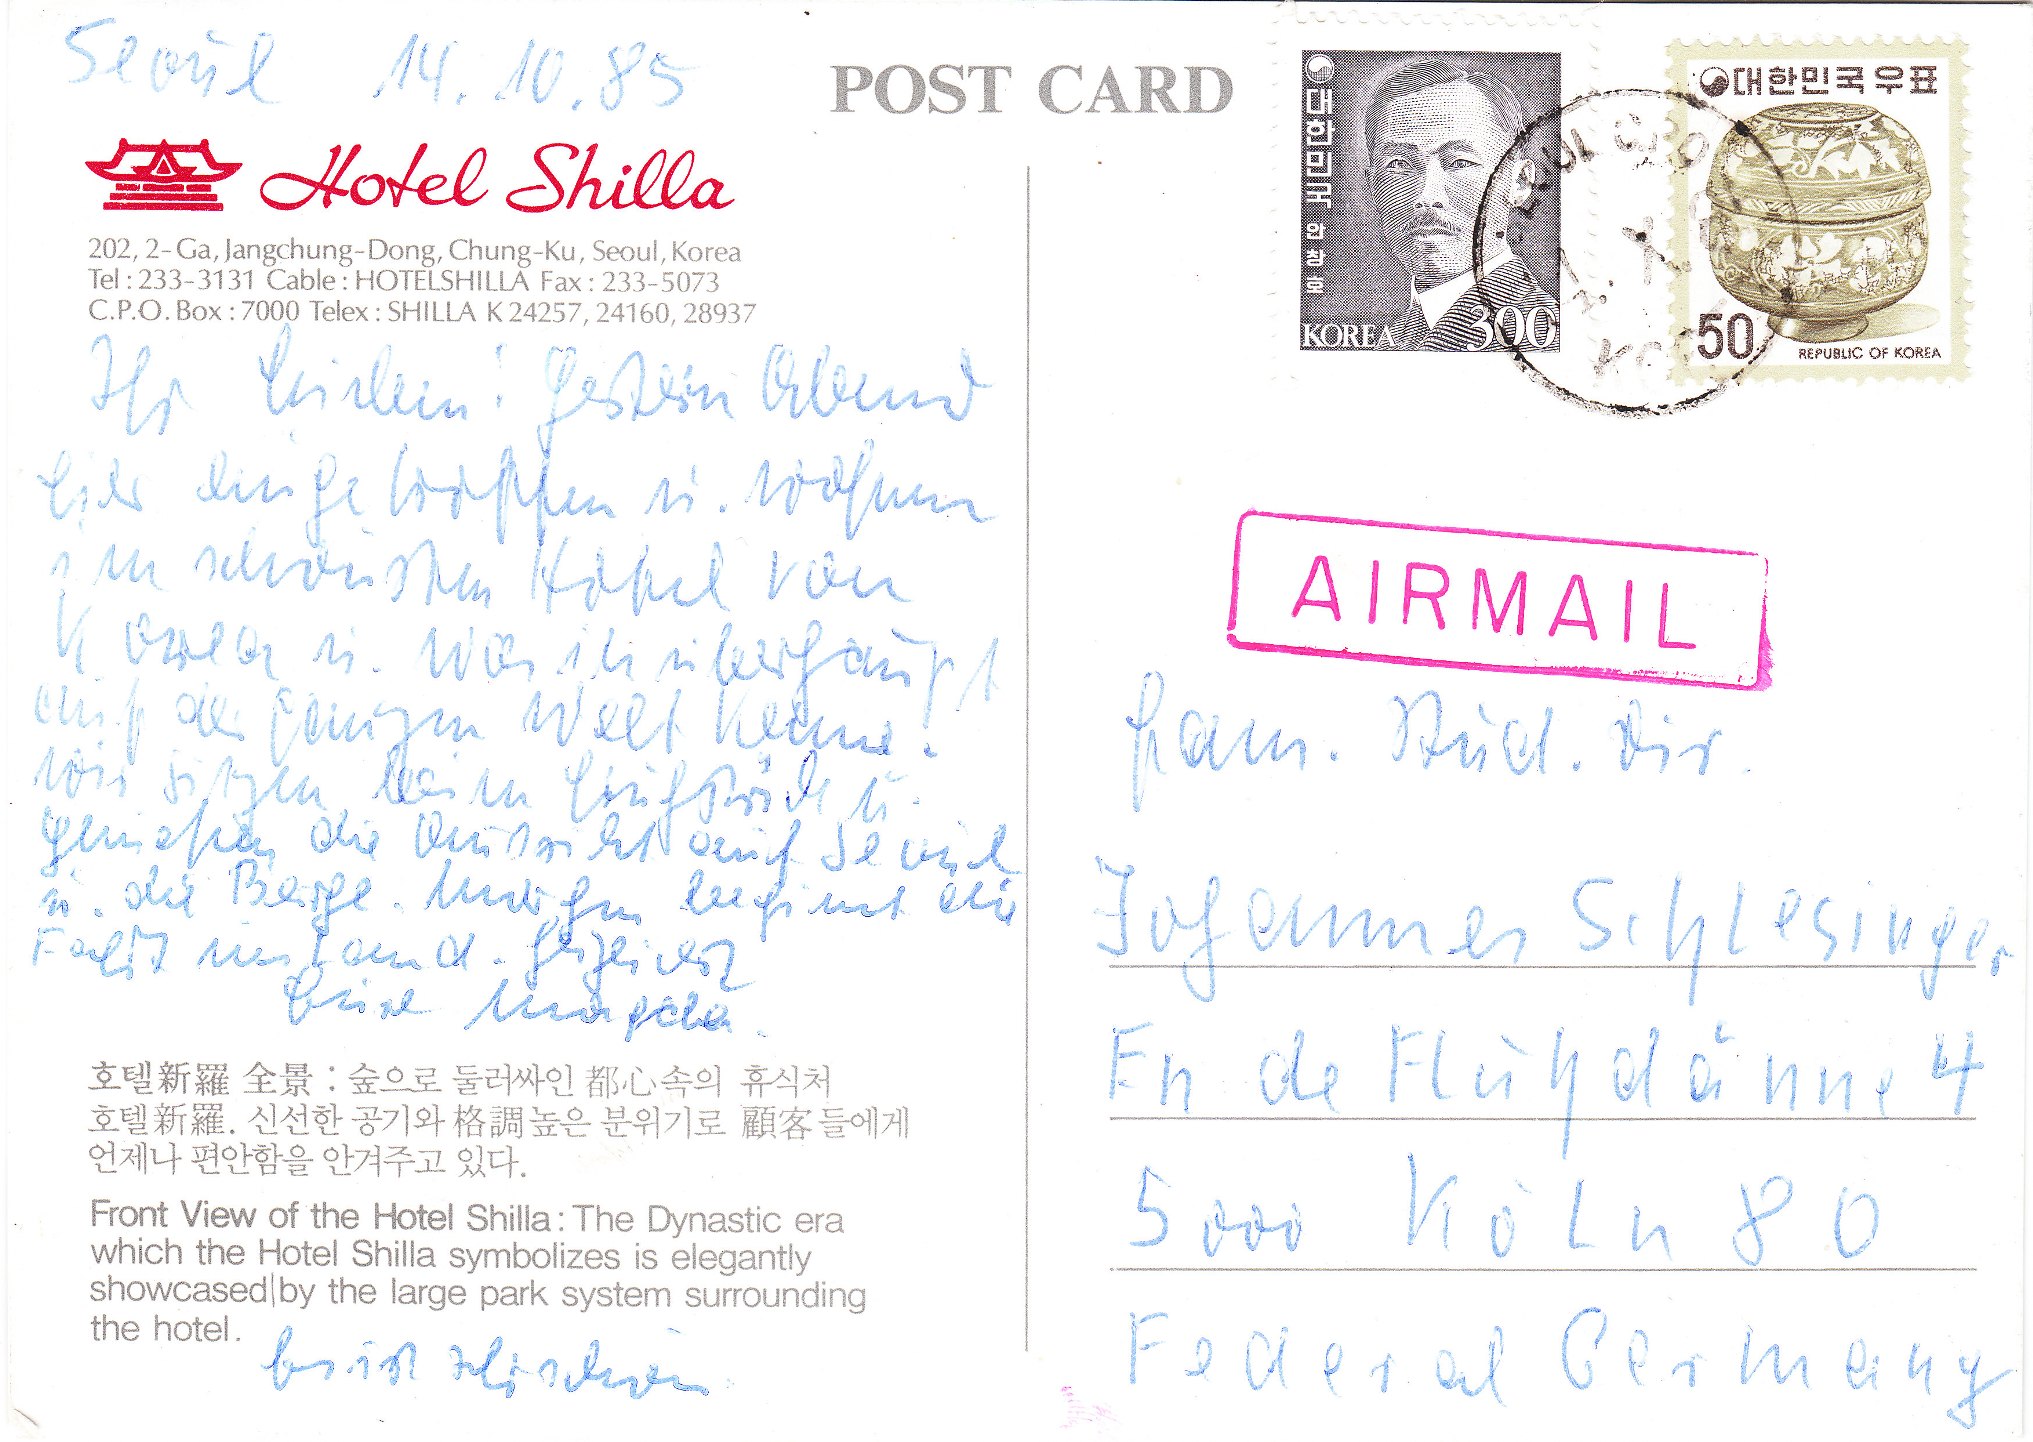 Seoul 14.10.85
POST CARD
Hotel Shilla
202, 2-Ga, Jangchung-Dong, Chung-Ku, Seoul, Korea
Tel : 233-3131 Cable : HOTELSHILLA Fax : 233-5073
C.P.O. Box : 7000 Telex : SHILLA K 24257, 24160, 28937
Ihr Lieben! Gestern Abend
hier eingetroffen u. wohnen
im schönsten Hotel von
Korea u. was ich überhaupt
auf der ganzen Welt kenne.
Wir sitzen beim Frühstück u.
genießen die Aussicht auf Seoul
u. die Berge. Morgen beginnt die
Fahrt ins Land. Herzlichst
Eure
호텔新羅 全景 : 숲으로 둘러싸인 都心속의 휴식처
호텔新羅. 신선한 공기와 格調높은 분위기로 顧客들에게
언제나 편안함을 안겨주고 있다.
Front View of the Hotel Shilla : The Dynastic era
which the Hotel Shilla symbolizes is elegantly
showcased by the large park system surrounding
the hotel.
대한민국 안창호
KOREA 300
대한민국우표
50
REPUBLIC OF KOREA
AIRMAIL
Fam. Stud. Dir.
Johannes Schlesinger
En de Fluhdänne 4
5000 Köln 80
Federal Germany